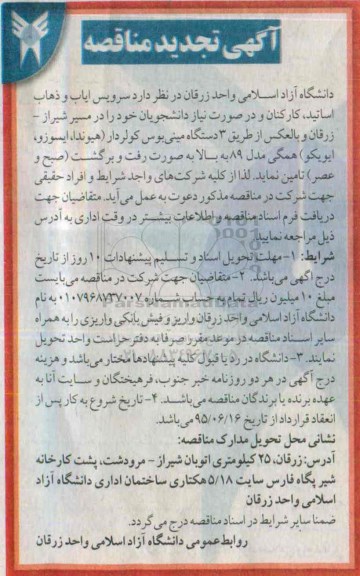 آگهی تجدید مناقصه
دانشگاه آزاد اسلامی واحد زرقان در نظر دارد سرویس ایاب و ذهاب
اساتید، کارکنان و در صورت نیاز دانشجویان خود را در مسیر شیراز -
زرقان و بالعکس از طریق ۳ دستگاه مینی‌بوس کولردار (هیوندا، ایسوزو،
ایویکو) همگی مدل ۸۹ به بالا به صورت رفت و برگشت (صبح و
عصر) تامین نماید. لذا از کلیه شرکت‌های واجد شرایط و افراد حقیقی
جهت شرکت در مناقصه مذکور دعوت به عمل می‌آید. متقاضیان جهت
دریافت فرم اسناد مناقصه و اطلاعات بیشتر در وقت اداری به آدرس
ذیل مراجعه نمایند.
شرایط: ۱- مهلت تحویل اسناد و تسلیم پیشنهادات ۱۰ روز از تاریخ
درج آگهی می‌باشد. ۲- متقاضیان جهت شرکت در مناقصه می‌بایست
مبلغ ۱۰ میلیون ریال تمام به حساب شماره ۰۱۰۷۹۶۸۷۳۷۰۰۷ به نام
دانشگاه آزاد اسلامی واحد زرقان واریز و فیش بانکی واریزی را به همراه
سایر اسناد مناقصه در موعد مقرر صرفا به دفتر حراست واحد تحویل
نمایند. ۳- دانشگاه در رد یا قبول کلیه پیشنهادها مختار می‌باشد و هزینه
درج آگهی در هر دو روزنامه خبر جنوب، فرهیختگان و سایت آنا به
عهده برنده یا برندگان مناقصه می‌باشد. ۴- تاریخ شروع به کار پس از
انعقاد قرارداد از تاریخ ۹۵/۰۶/۱۶ می‌باشد.
نشانی محل تحویل مدارک مناقصه:
آدرس: زرقان، ۲۵ کیلومتری اتوبان شیراز - مرودشت، پشت کارخانه
شیر پگاه فارس سایت ۵/۱۸ هکتاری ساختمان اداری دانشگاه آزاد
اسلامی واحد زرقان
ضمنا سایر شرایط در اسناد مناقصه درج می‌گردد.
روابط عمومی دانشگاه آزاد اسلامی واحد زرقان